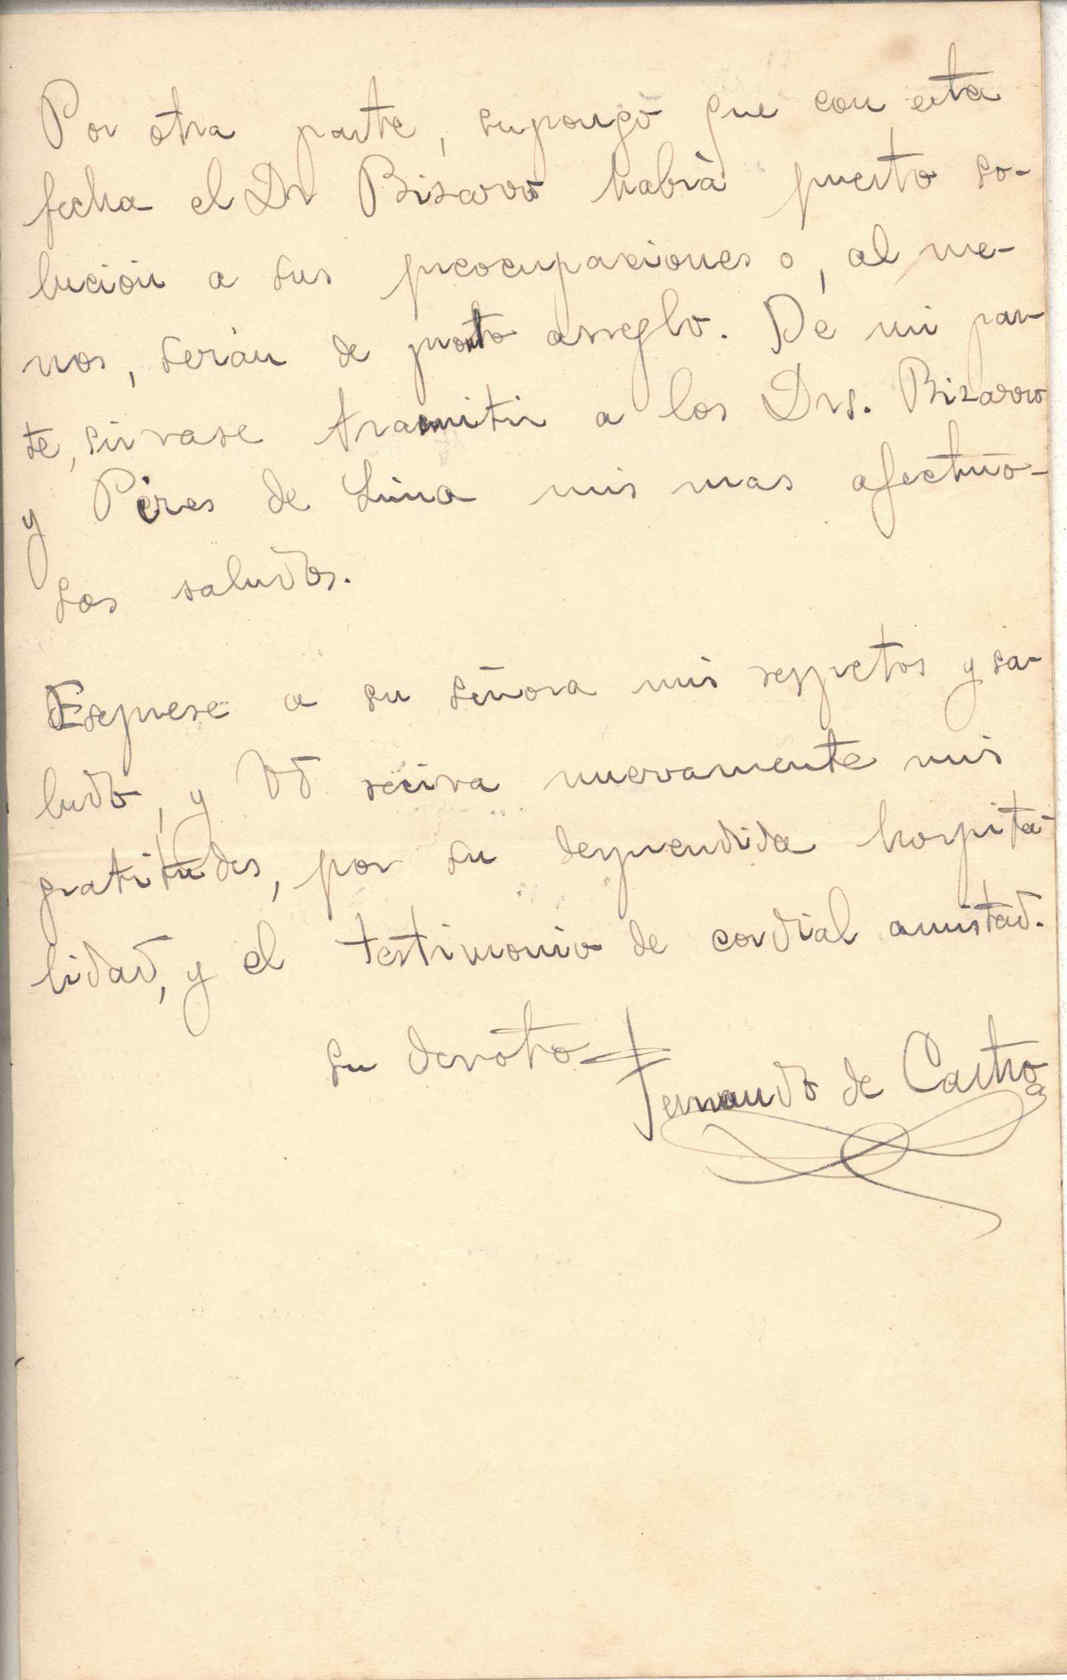 Por otra parte, supongo que con esta
fecha el Dr Bisarro habrà puesto so-
lución a sus preocupaxiones o, al me-
nos, serán de pronto arreglo. De mi par-
te, sirvase trasmitir a los Drs. Bizarro
y Pires de Lima mis mas afectuo-
sos saludos.
Exprese a su señora mis respetos y sa-
ludo, y Vd reciva nuevamente mis
gratitudes, por su desprendida hospita-
lidad, y el testimonio de cordial amistad.
su devoto
Fernando de Castro